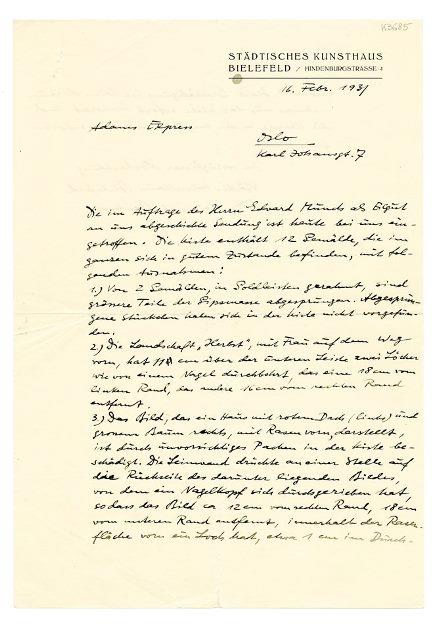 K3685
STÄDTISCHES KUNSTHAUS
BIELEFELD / HINDENBURGSTRASSE 4
16. Febr. 1931
Adams Express
Oslo
Karl Johansgt. 7
Die im Auftrage des Herrn Edvard Munch als Eilgut
an uns abgeschickte Sendung ist heute bei uns ein-
getroffen. Die Kiste enthält 12 Gemälde, die im
ganzen sich in gutem Zustande befinden, mit fol-
genden Ausnahmen:
1.) Von 2 Gemälden, in Goldleisten gerahmt, sind
grössere Teile der Gipsmasse abgesprungen. Abgesprun-
gene Stückchen haben sich in der Kiste nicht vorgefun-
den.
2) Die Landschaft „Herbst", mit Frau auf dem Weg
vorn, hat cm über der unteren Leiste zwei Löcher
wie von einem Nagel durchbohrt, das eine 18 cm vom
linken Rand, das andere 16 cm vom rechten Rand
entfernt.
3) Das Bild, das ein Haus mit rotem Dach (links) und
grossem Baum rechts, mit Rasen vorn, darstellt,
ist durch unvorsichtiges Packen in der Kiste be-
schädigt. Die Leinwand drückte an einer Stelle auf
die Rückseite des darunter liegenden Bildes,
von dem ein Nagelkopf sich durchgerieben hat,
sodass das Bild ca 12 cm vom rechten Rand, 18 cm
vom unteren Rand entfernt, innerhalb der Rasen-
fläche vorn ein Loch hat, etwa 1 cm im Durch-